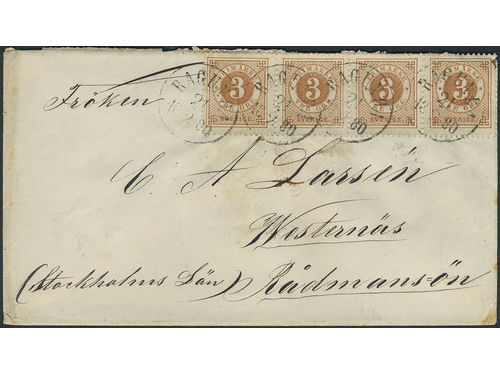 3 3 3 3
SVERIGE. SVERIGE. SVERIGE. SVERIGE.
Fröken
C A Larsén
Westernäs
(Stockholms Län) Rådmansön